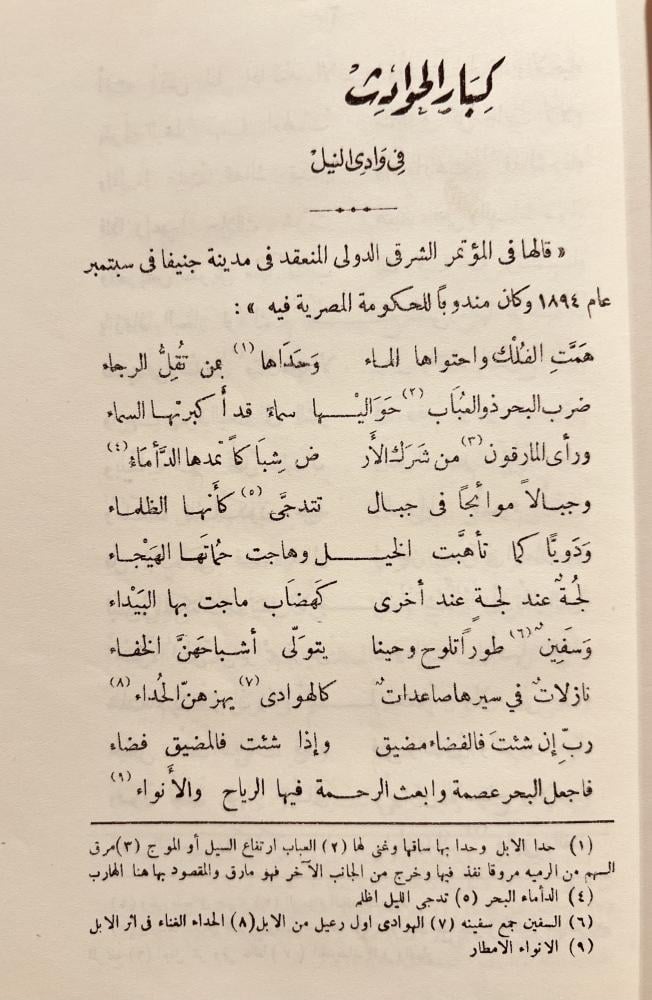 كِبَارُ الحَوَادِثِ
فِي وَادِي النيلْ
« قالها فى المؤتمر الشرقى الدولى المنعقد فى مدينة جنيفا فى سبتمبر
عام ١٨٩٤ وكان مندوباً للحكومة المصرية فيه » :
هَمَّتِ الفُلْكُ واحتواها الماء وَحَدَاها (١) بمن تُقِلُّ الرجاء
ضرب البحر ذو العُبَاب (٢) حَوَاليْـها سماءً قد أكبرتها السماء
ورأى المارقون (٣) من شَرَك الأَرض شِباكاً تمدها الدَّأماءُ (٤)
وجبالاً موائجاً فى جبال تتدجَّى (٥) كأَنها الظلماء
وَدَوِيًّا كما تأهَّبت الخيـل وهاجت حُمَاتَها الهَيْجاء
لجُةٌ عند لجةٍ عند أخرى كَهضَاب ماجت بها البَيْداء
وَسَفينٌ (٦) طوراً تلوح وحينا يتولَّى أشباحَهنَّ الخفاء
نازلاتٌ في سيرها صاعداتٌ كالهوادى (٧) يهزهنّ الحُداء (٨)
ربِّ إن شئتَ فالفضاء مضيق وإذا شئت فالمضيق فضاء
فاجعل البحر عصمة وابعث الرحـمة فيها الرياح والأَنواء (٩)
(١) حدا الابل وحدا بها ساقها وغنى لها (٢) العباب ارتفاع السيل أو الموج (٣) مرق
السهم من الرميه مروقا نفذ فيها وخرج من الجانب الآخر فهو مارق والمقصود بها هنا الهارب
(٤) الدأماء البحر (٥) تدجى الليل اظلم
(٦) السفين جمع سفينه (٧) الهوادى اول رعيل من الابل (٨) الحداء الغناء فى اثر الابل
(٩) الانواء الامطار